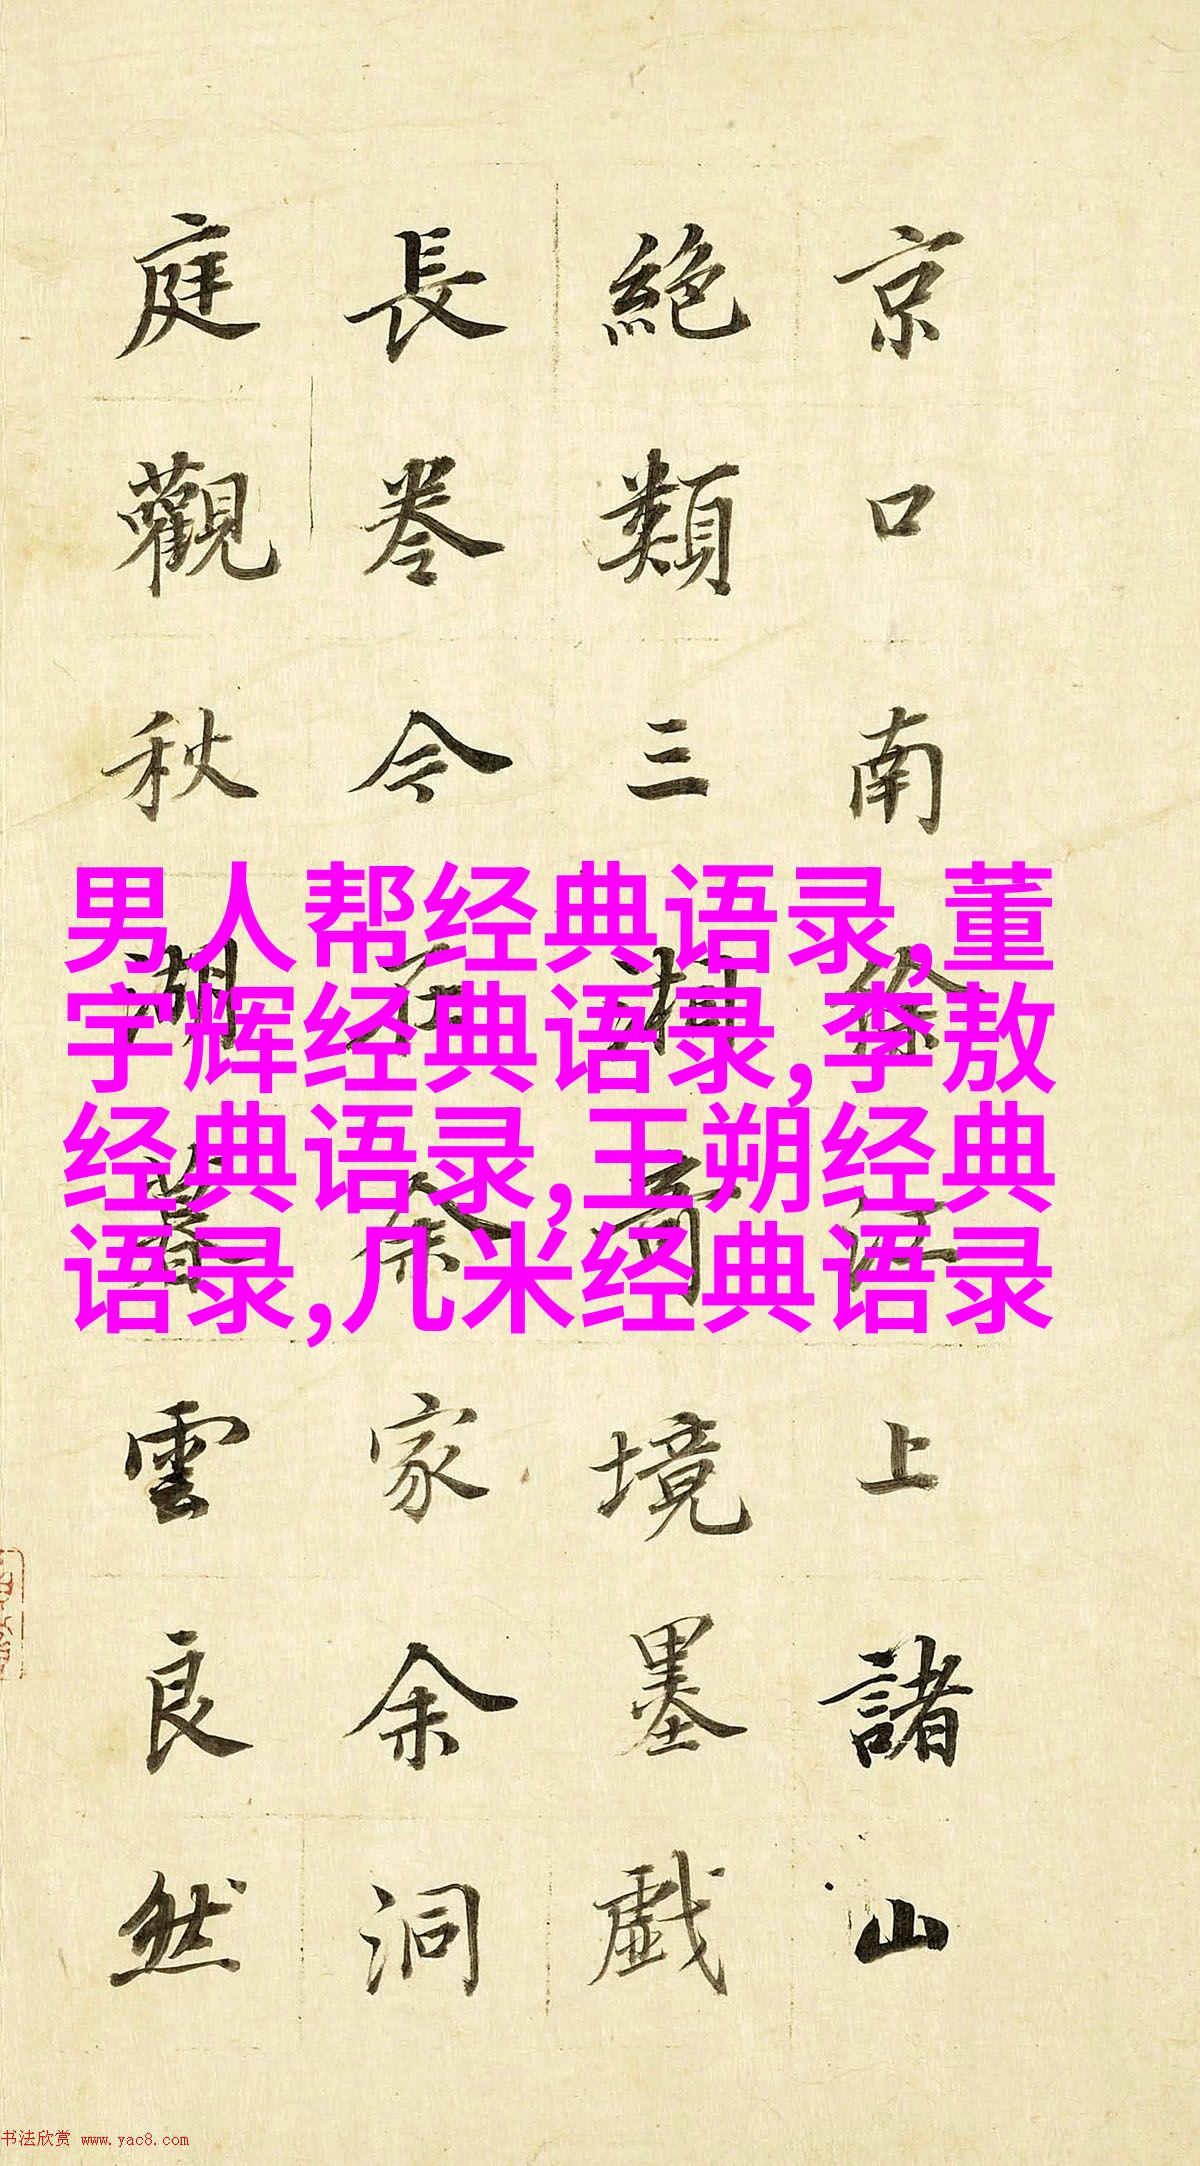 京口南徐江上諸山
絶類三湘境墨戲
長卷今在家余洞
庭觀秋湖暮雲良然
男人帮经典语录,董
宇辉经典语录,李敖
经典语录,王朔经典
语录,几米经典语录
书法欣赏 www.yac8.com